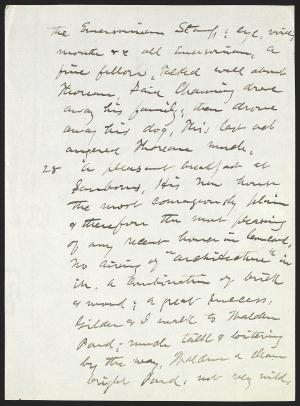 the Emersonian stamp; eye, voice,
mouth &c all Emersonian, a
fine fellow, talked well about
Thoreau, Said Channing drove
away his family, then drove
away his dog, This last act
angered Thoreau much.
28 A pleasant breakfast at
Sanborns, His new house
the most courageously plain
& therefore the most pleasing
of any recent house in Concord,
No airing of "architecture" in
it. a combination of brick
& wood; a great success,
Gilder & I walk to Walden
Pond; much talk & loitering
by the way, Walden a clean
bright Pond, not very wild,